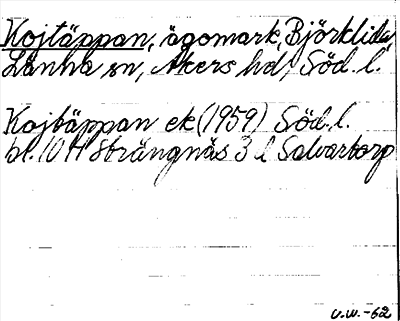 Kojtäppan, ägomark, Björklida
Länna sn, Åkers hd, Söd. l.
Kojtäppan ek (1959) Söd. l.
bl. 10 H Strängnäs 3 l Salvartorp
V.W.-62